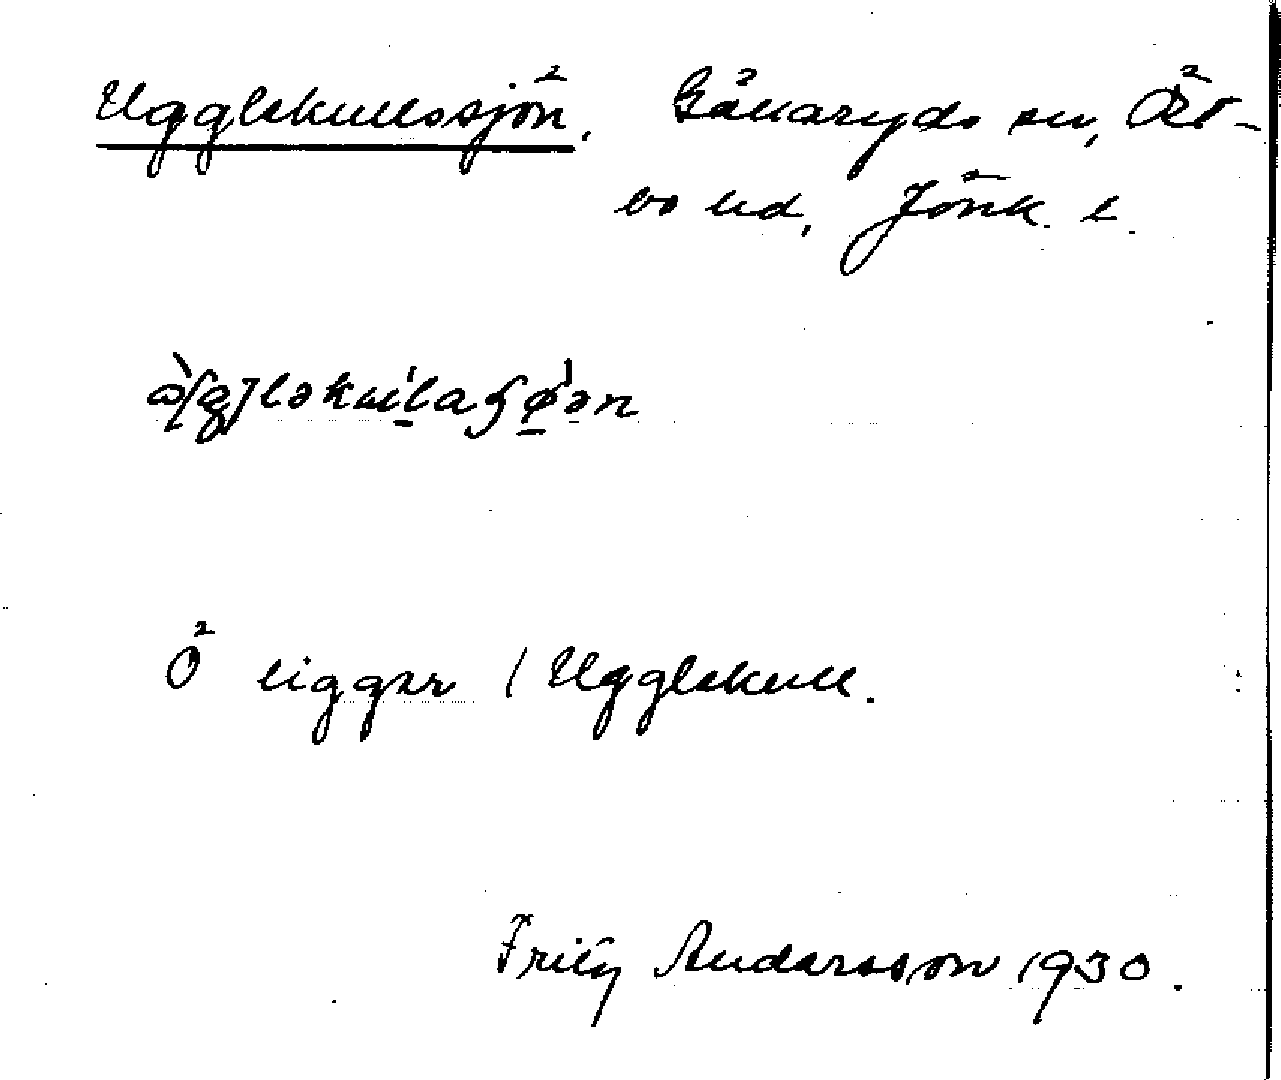 Ugglekullssjön. Gällaryds sn, Öst-
bo hd, Jönk. l.
Ö ligger i Ugglekull.
Fritz Andersson 1930.